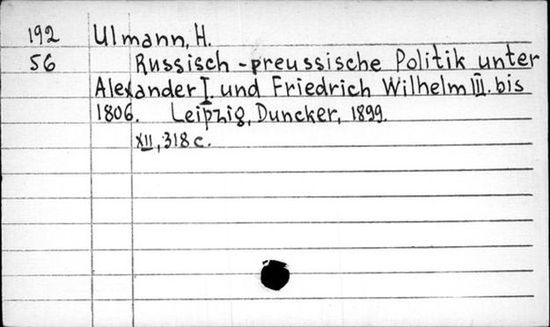 192 Ulmann, H.
56 Russisch-preussische Politik unter
Alexander I. und Friedrich Wilhelm III. bis
1806. Leipzig, Duncker, 1899.
XII, 318 c.